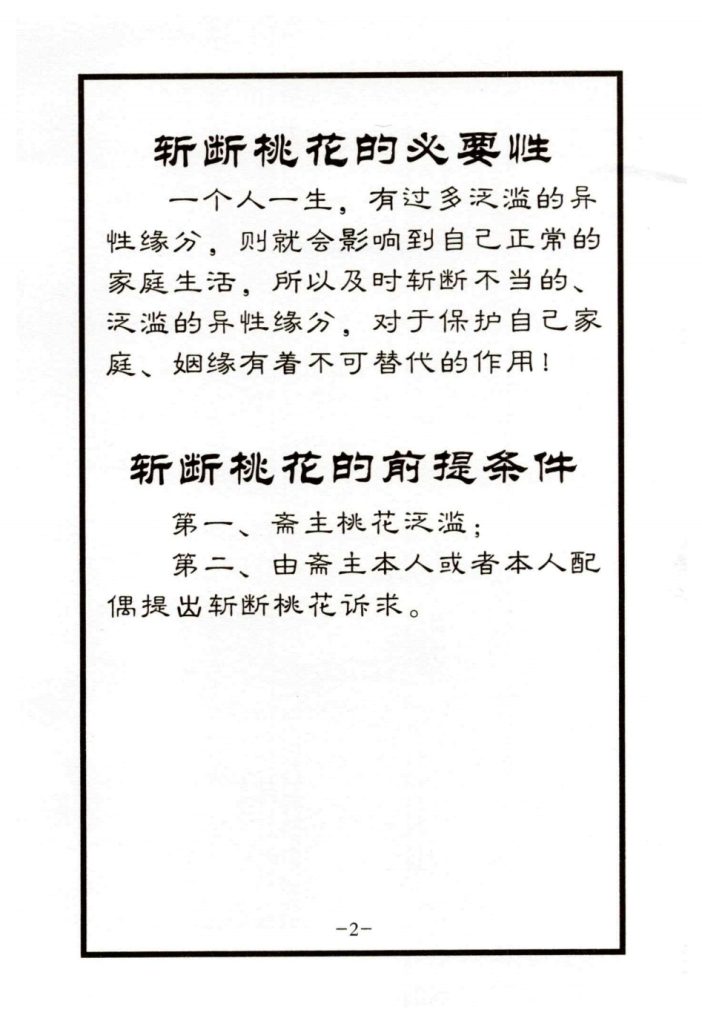 斩断桃花的必要性
一个人一生，有过多泛滥的异
性缘分，则就会影响到自己正常的
家庭生活，所以及时斩断不当的、
泛滥的异性缘分，对于保护自己家
庭、姻缘有着不可替代的作用！
斩断桃花的前提条件
第一、斋主桃花泛滥；
第二、由斋主本人或者本人配
偶提出斩断桃花诉求。
-2-